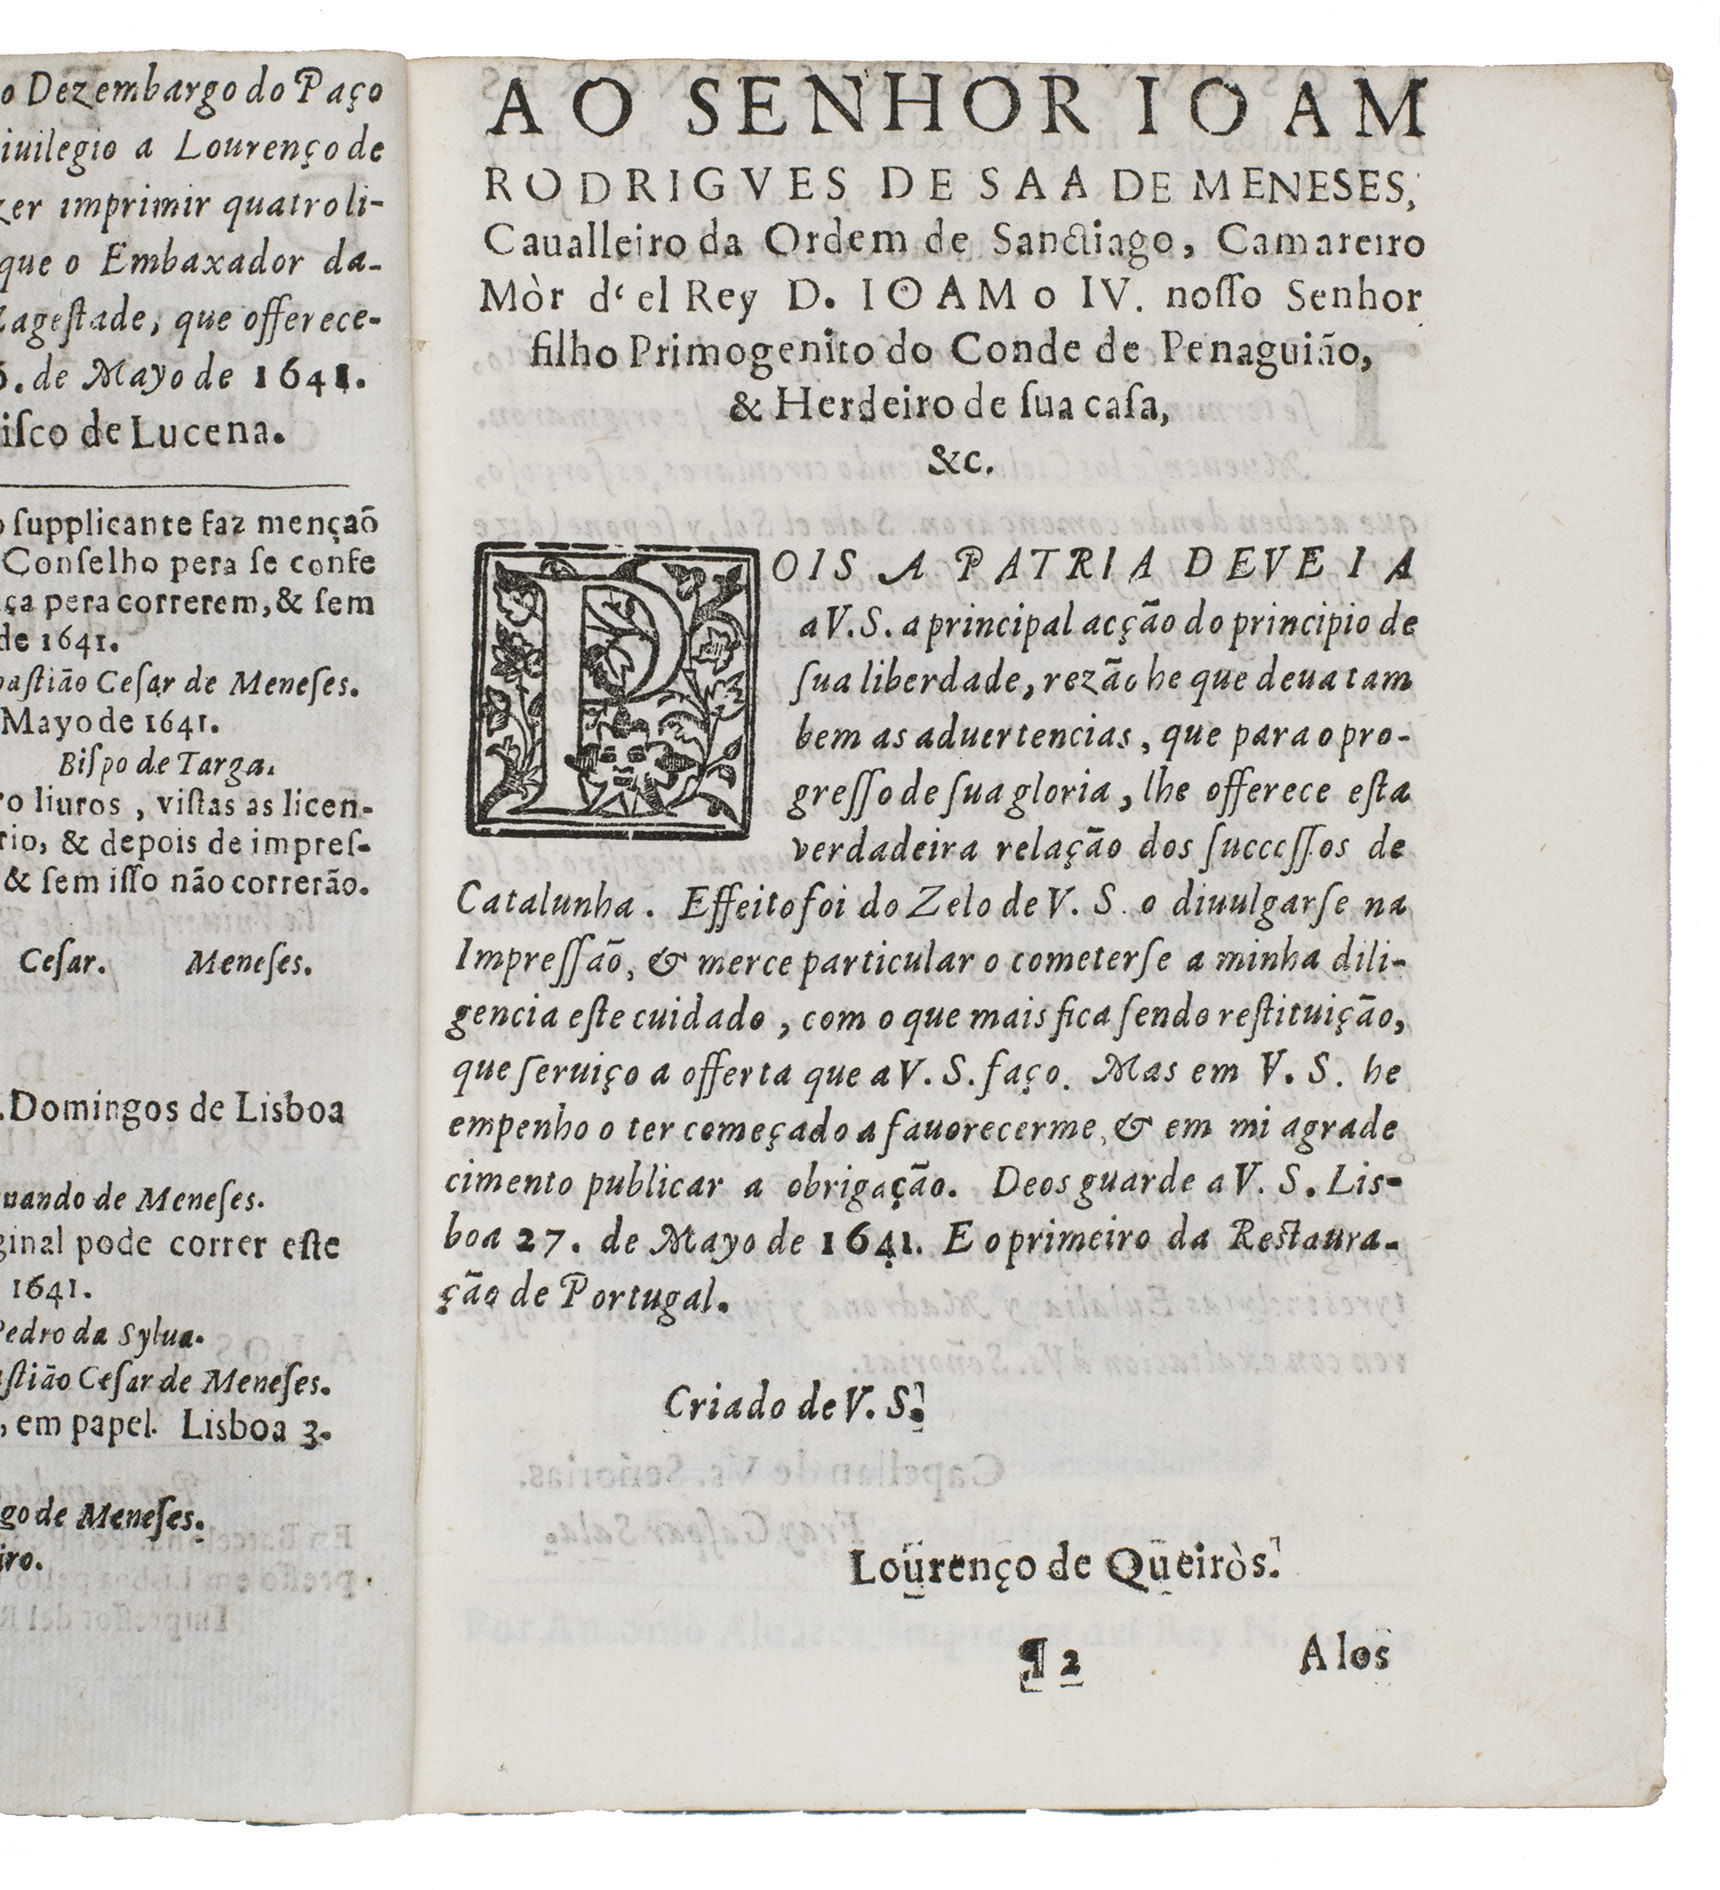 o Dezembargo do Paço
iuilegio a Lourenço de
zer imprimir quatro li-
que o Embaxador da-
ageſtade, que offerece-
6. de Mayo de 1641.
iſco de Lucena.
o ſupplicante faz mençaõ
Conſelho pera ſe confe
ça pera correrem, & ſem
de 1641.
baſtião Ceſar de Meneſes.
Mayo de 1641.
Biſpo de Targa.
ro liuros, viſtas as licen-
rio, & depois de impreſ-
& ſem iſſo não correrão.
Ceſar. Meneſes.
. Domingos de Lisboa
nando de Meneſes.
ginal pode correr eſte
1641.
Pedro da Sylua.
aſtião Ceſar de Meneſes.
, em papel. Lisboa 3.
go de Meneſes.
iro.
AO SENHOR IOAM
RODRIGVES DE SAA DE MENESES,
Caualleiro da Ordem de Sanctiago, Camareiro
Mòr d' el Rey D. IOAM o IV. noſſo Senhor
filho Primogenito do Conde de Penaguião,
& Herdeiro de ſua caſa,
&c.
POIS A PATRIA DEVE IA
a V. S. a principal acção do principio de
ſua liberdade, rezão he que deua tam
bem as aduertencias, que para o pro-
greſſo de ſua gloria, lhe offerece eſta
verdadeira relação dos ſucceſſos de
Catalunha. Effeito foi do Zelo de V. S. o diuulgarſe na
Impreſſão, & merce particular o cometerſe a minha dili-
gencia eſte cuidado, com o que mais fica ſendo reſtituição,
que ſeruiço a offerta que a V. S. faço. Mas em V. S. he
empenho o ter começado a fauorecerme, & em mi agrade
cimento publicar a obrigação. Deos guarde a V. S. Lis-
boa 27. de Mayo de 1641. E o primeiro da Restaura-
ção de Portugal.
Criado de V. S.
Lourenço de Queiròs.
¶ 2 A los